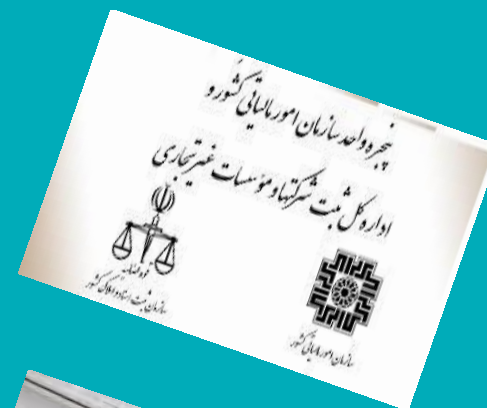 پنجره واحد سازمان امور مالیاتی کشور و
اداره کل ثبت شرکتها و مؤسسات غیر تجاری
قوه قضائیه
سازمان ثبت اسناد و املاک کشور
سازمان امور مالیاتی کشور